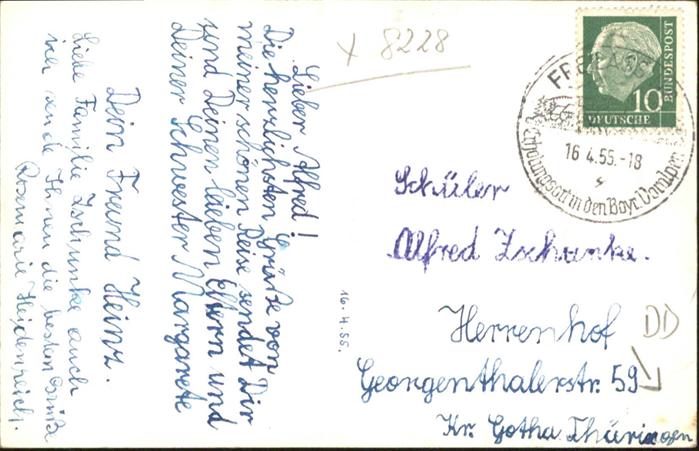 x 8228
Lieber Alfred!
Die herzlichsten Grüße von
meiner schönen Reise sendet Dir
und Deinen lieben Eltern und
Deiner Schwester Margarete
Dein Freund Heinz.
Liebe Familie Zschunke auch
ich sende Ihnen die besten Grüße
Rosemarie Heidenreich.
16.4.55.
10
DEUTSCHE
BUNDESPOST
16.4.55.-18
Erholungsort in den Bayr. Voralpen
Schüler
Alfred Zschunke.
Herrenhof
DD
Georgenthalerstr. 59
Kr. Gotha Thüringen